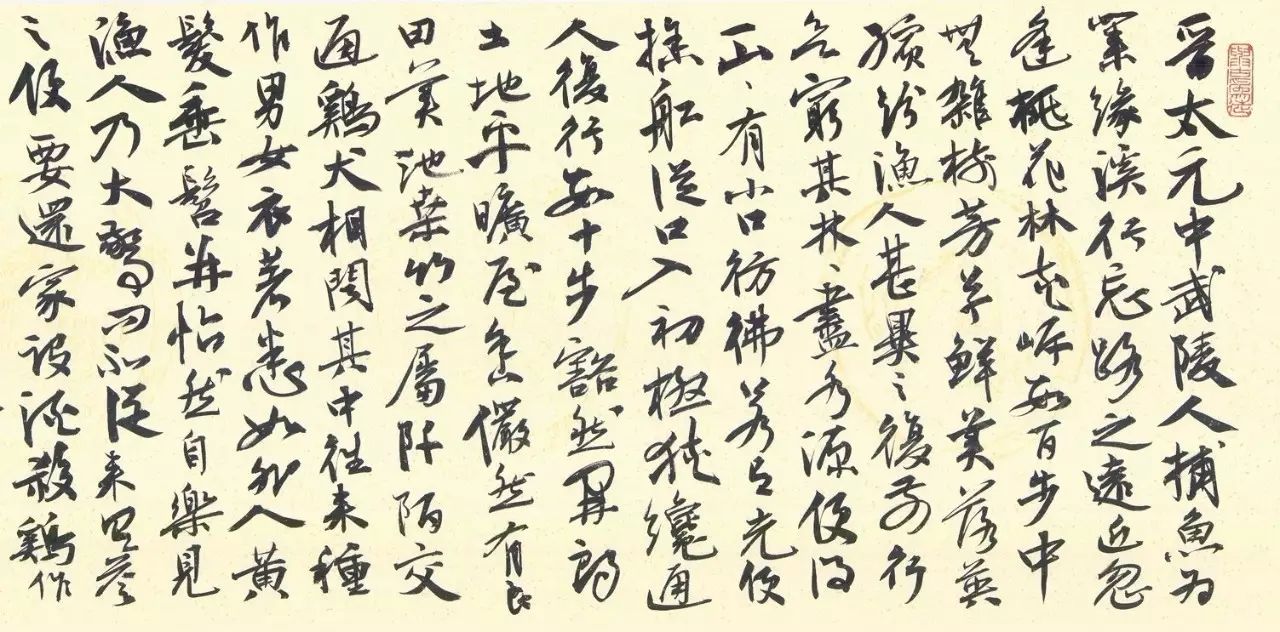 晋太元中武陵人捕魚为
業缘溪行忘路之遠近忽
逢桃花林夹岸數百步中
無雜樹芳草鮮美落英
繽紛漁人甚異之復前行
欲窮其林〻盡水源便得
一山〻有小口彷彿若有光便
捨船從口入初極狹纔通
人復行數十步豁然開朗
土地平曠屋舍儼然有良
田美池桑竹之屬阡陌交
通鷄犬相聞其中往来種
作男女衣著悉如外人黄
髮垂髫并怡然自樂見
漁人乃大驚問所從来具答
之便要還家設酒殺鷄作